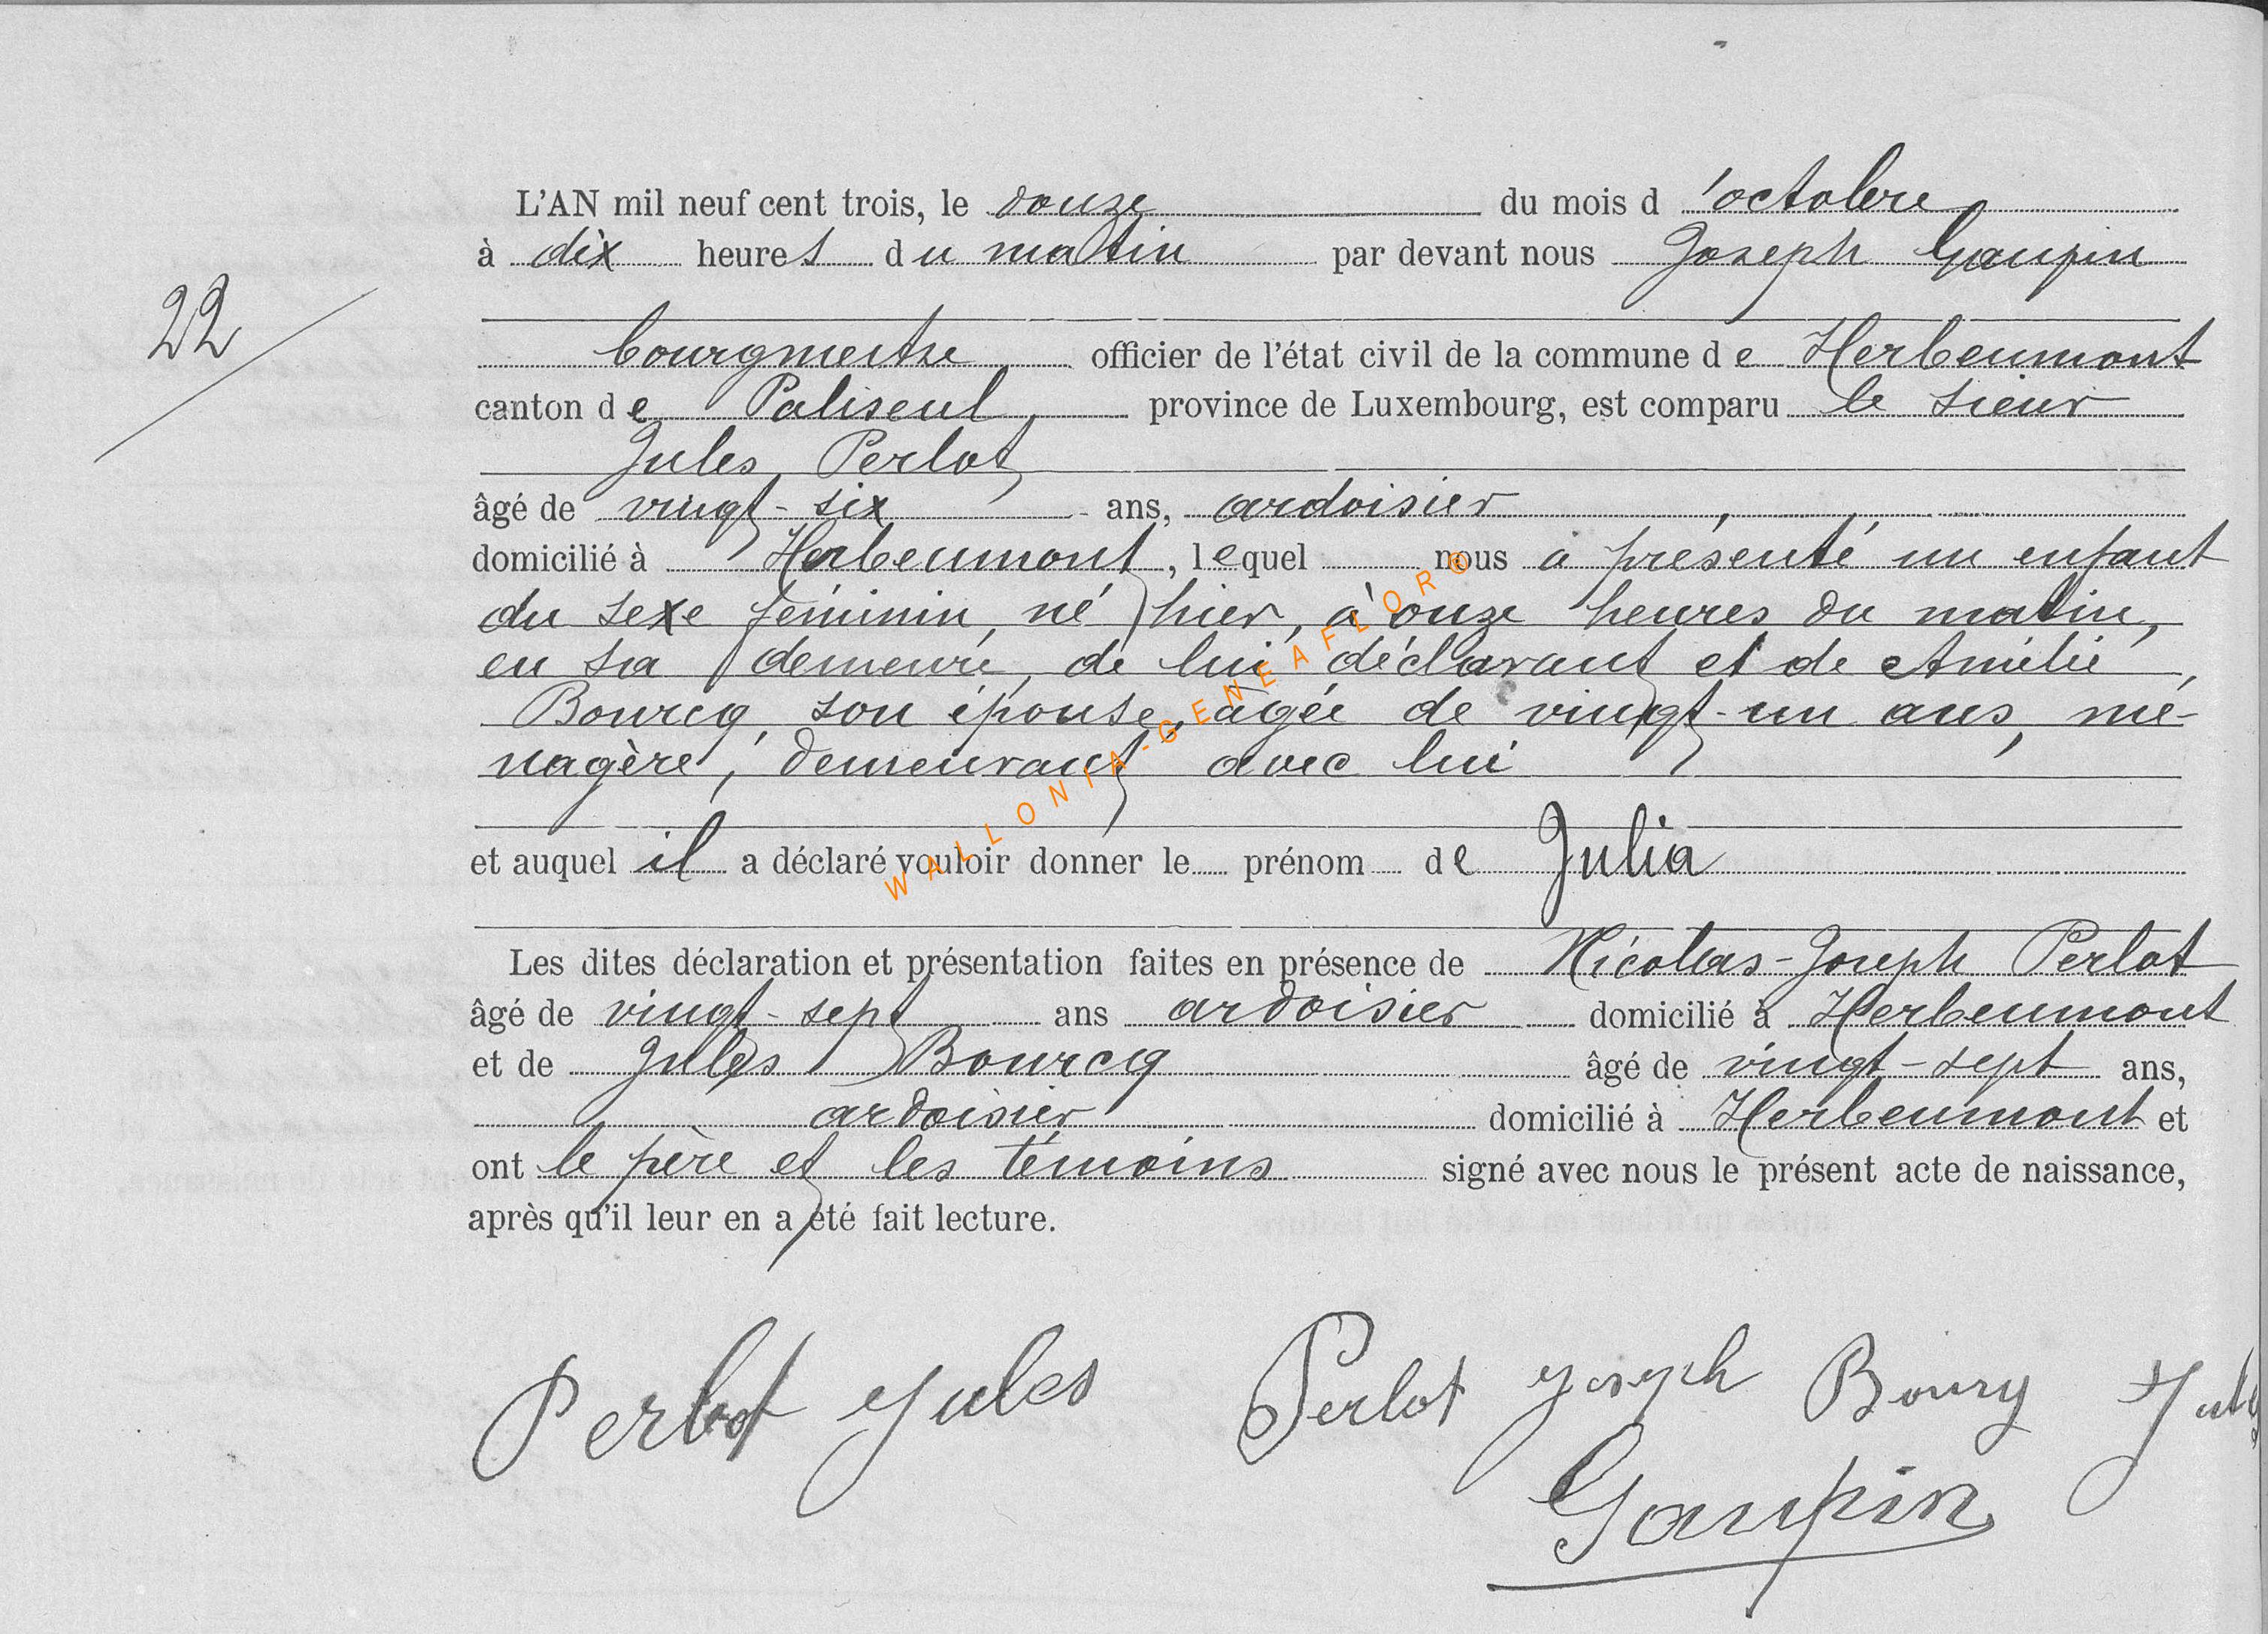 L'AN mil neuf cent trois, le douze du mois d'octobre
à dix heures du matin par devant nous Joseph Gaupin
22
bourgmestre officier de l'état civil de la commune de Herbeumont
canton de Paliseul, province de Luxembourg, est comparu le sieur
Jules Perlot
âgé de vingt-six ans, ardoisier,
domicilié à Herbeumont, lequel nous a présenté un enfant
du sexe féminin, né hier, à onze heures du matin,
en sa demeure, de lui déclarant et de Amélie
Bourcq, son épouse, âgée de vingt-un ans, mé-
nagère, demeurant avec lui
et auquel il a déclaré vouloir donner le prénom de Julia
Les dites déclaration et présentation faites en présence de Nicolas-Joseph Perlot
âgé de vingt-sept ans ardoisier domicilié à Herbeumont
et de Jules Bourcq âgé de vingt-sept ans,
ardoisier domicilié à Herbeumont et
ont le père et les témoins signé avec nous le présent acte de naissance,
après qu'il leur en a été fait lecture.
Perlot Jules Perlot Joseph Bourq Jules
Gaupin
WALLONIA-GENEAFLOR®